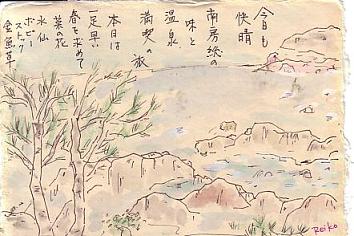 今日も
快晴
南房総の
味と
温泉
満喫の旅
本日は
一足早い
春を求めて
菜の花
水仙
ポピー
ストック
金魚草
Reiko